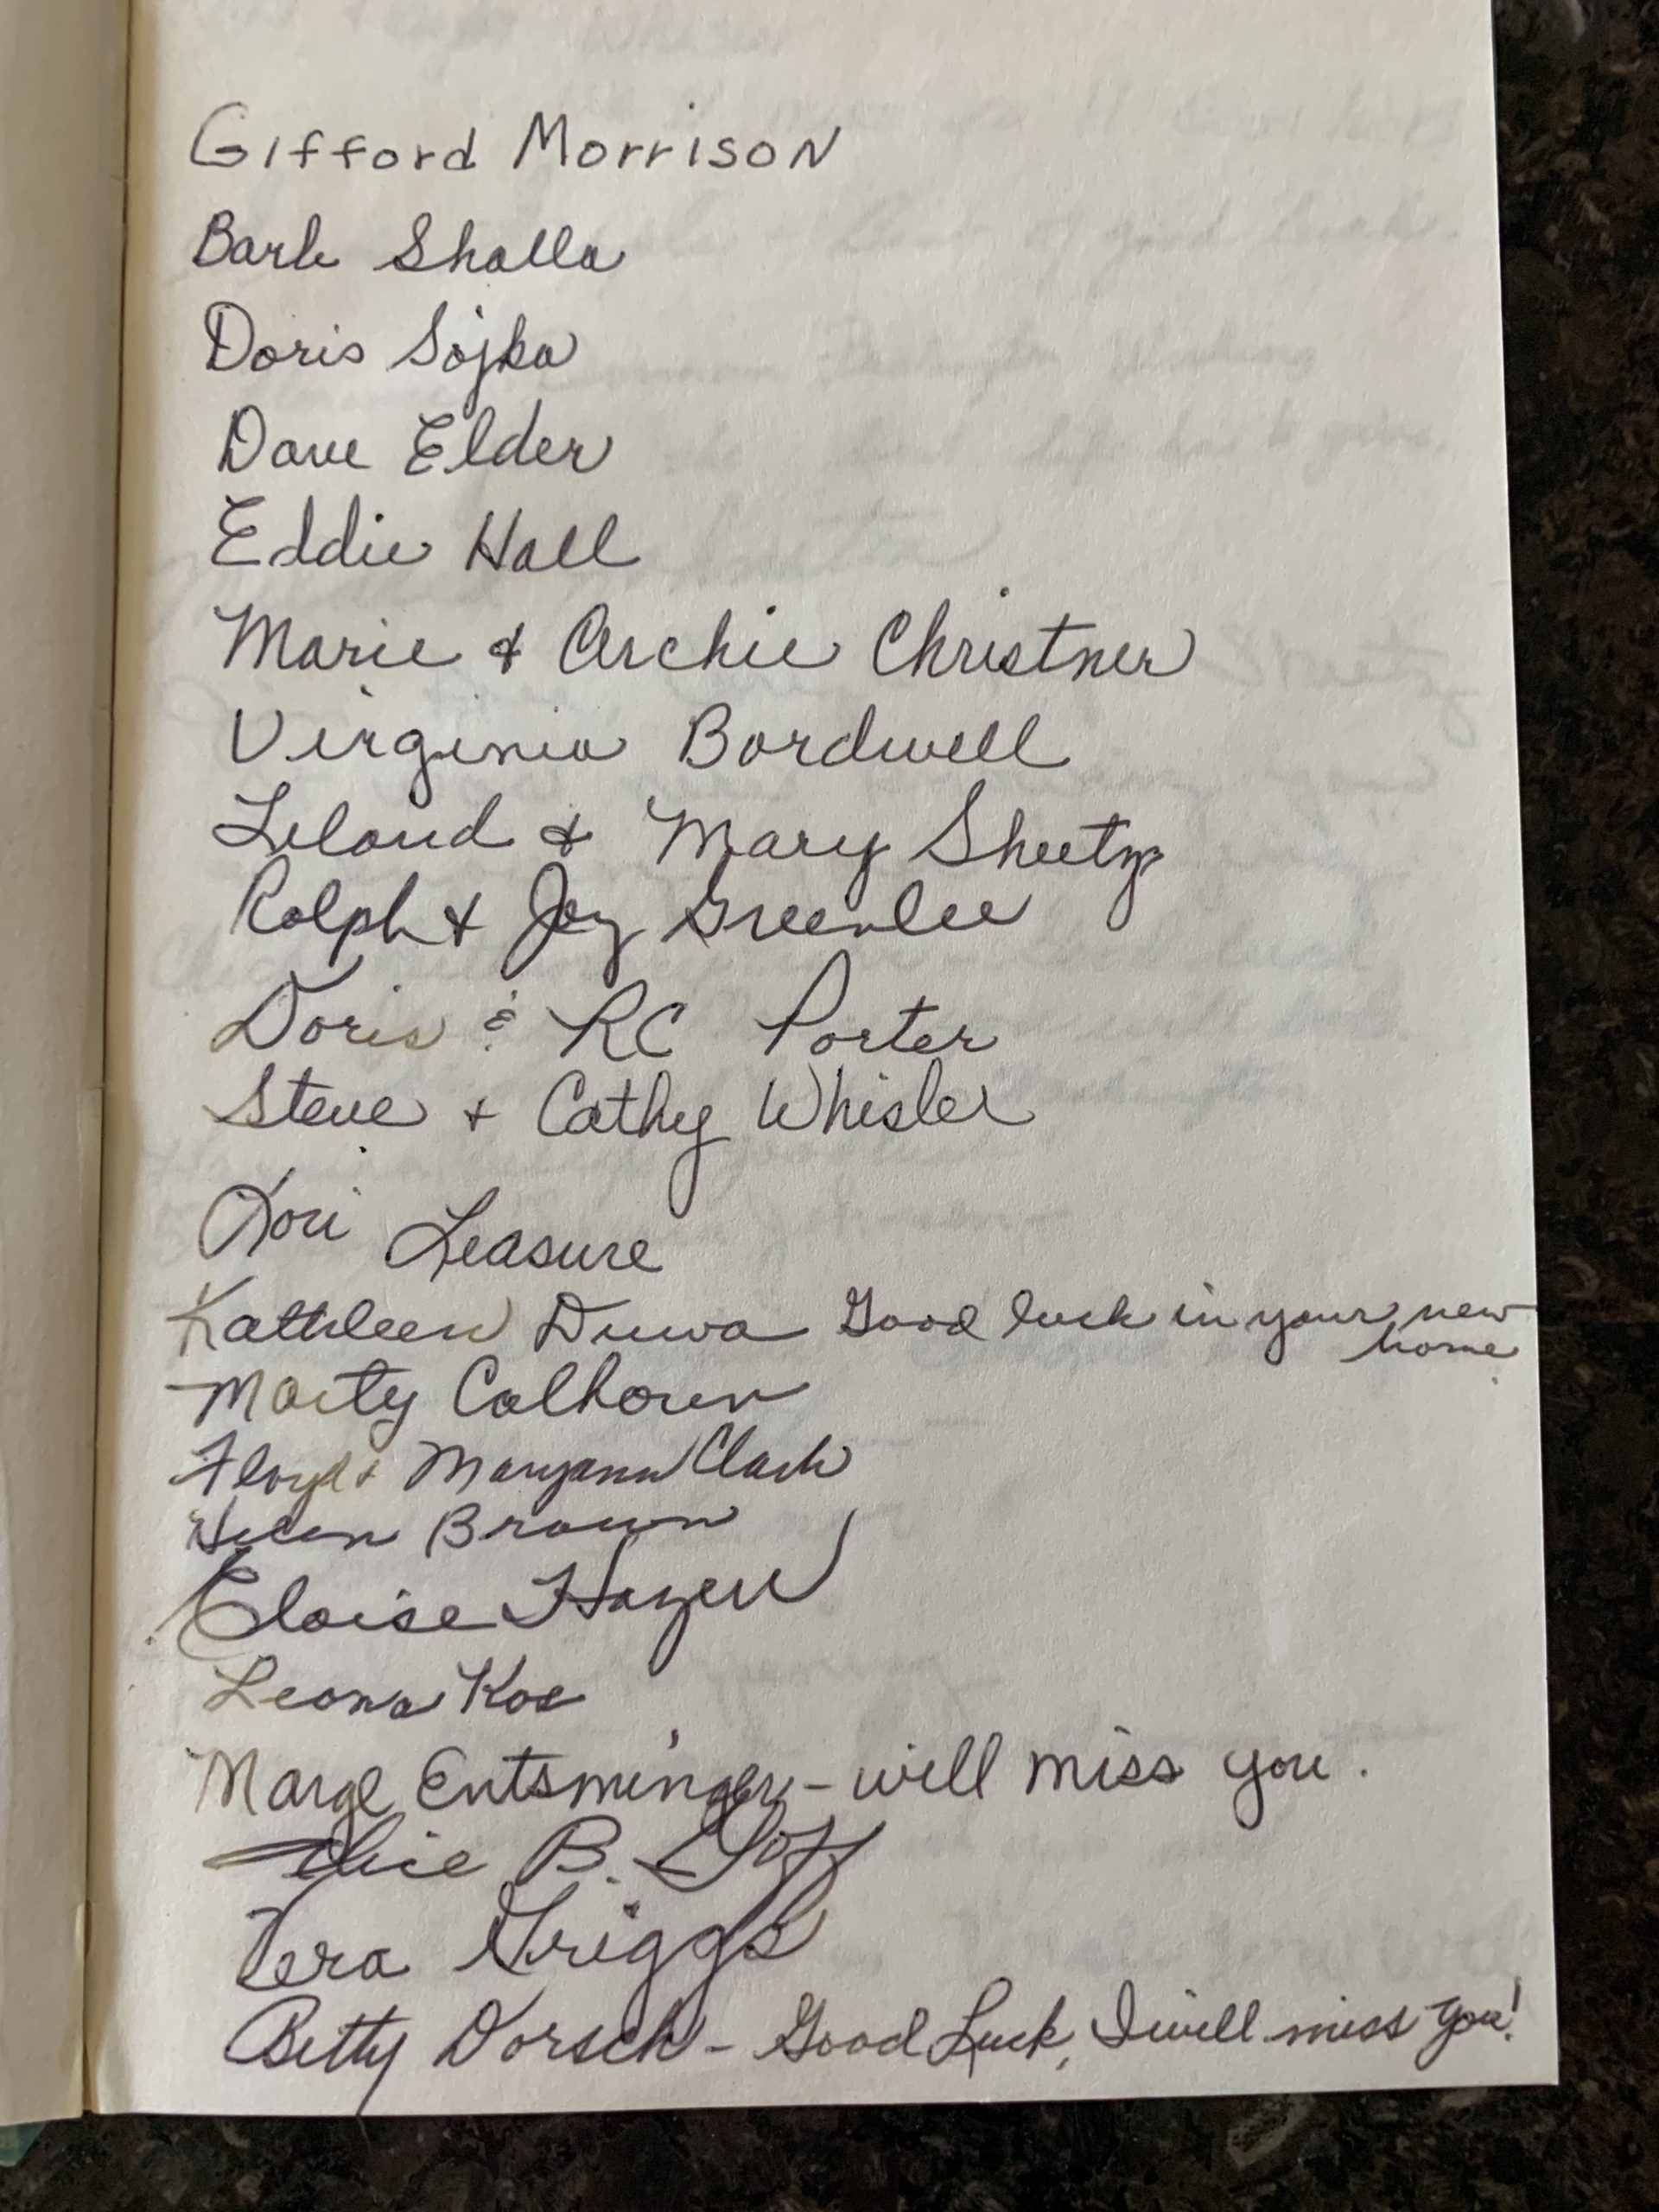 Gifford Morrison
Barb Shalla
Doris Sojka
Dave Elder
Eddie Hall
Marie & Archie Christner
Virginia Bordwell
Leland & Mary Sheetz
Ralph & Joy Greenlee
Doris & RC Porter
Steve + Cathy Whisler
Lori Leasure
Kathleen Duwa Good luck in your new
home
Marty Calhoun
Floyd + Maryann Clark
Helen Brown
Eloise Hazen
Leona Kos
Marge Entsminger - will miss you.
Alice B.
Vera Griggs
Betty Dorsch - Good Luck, I will miss you!